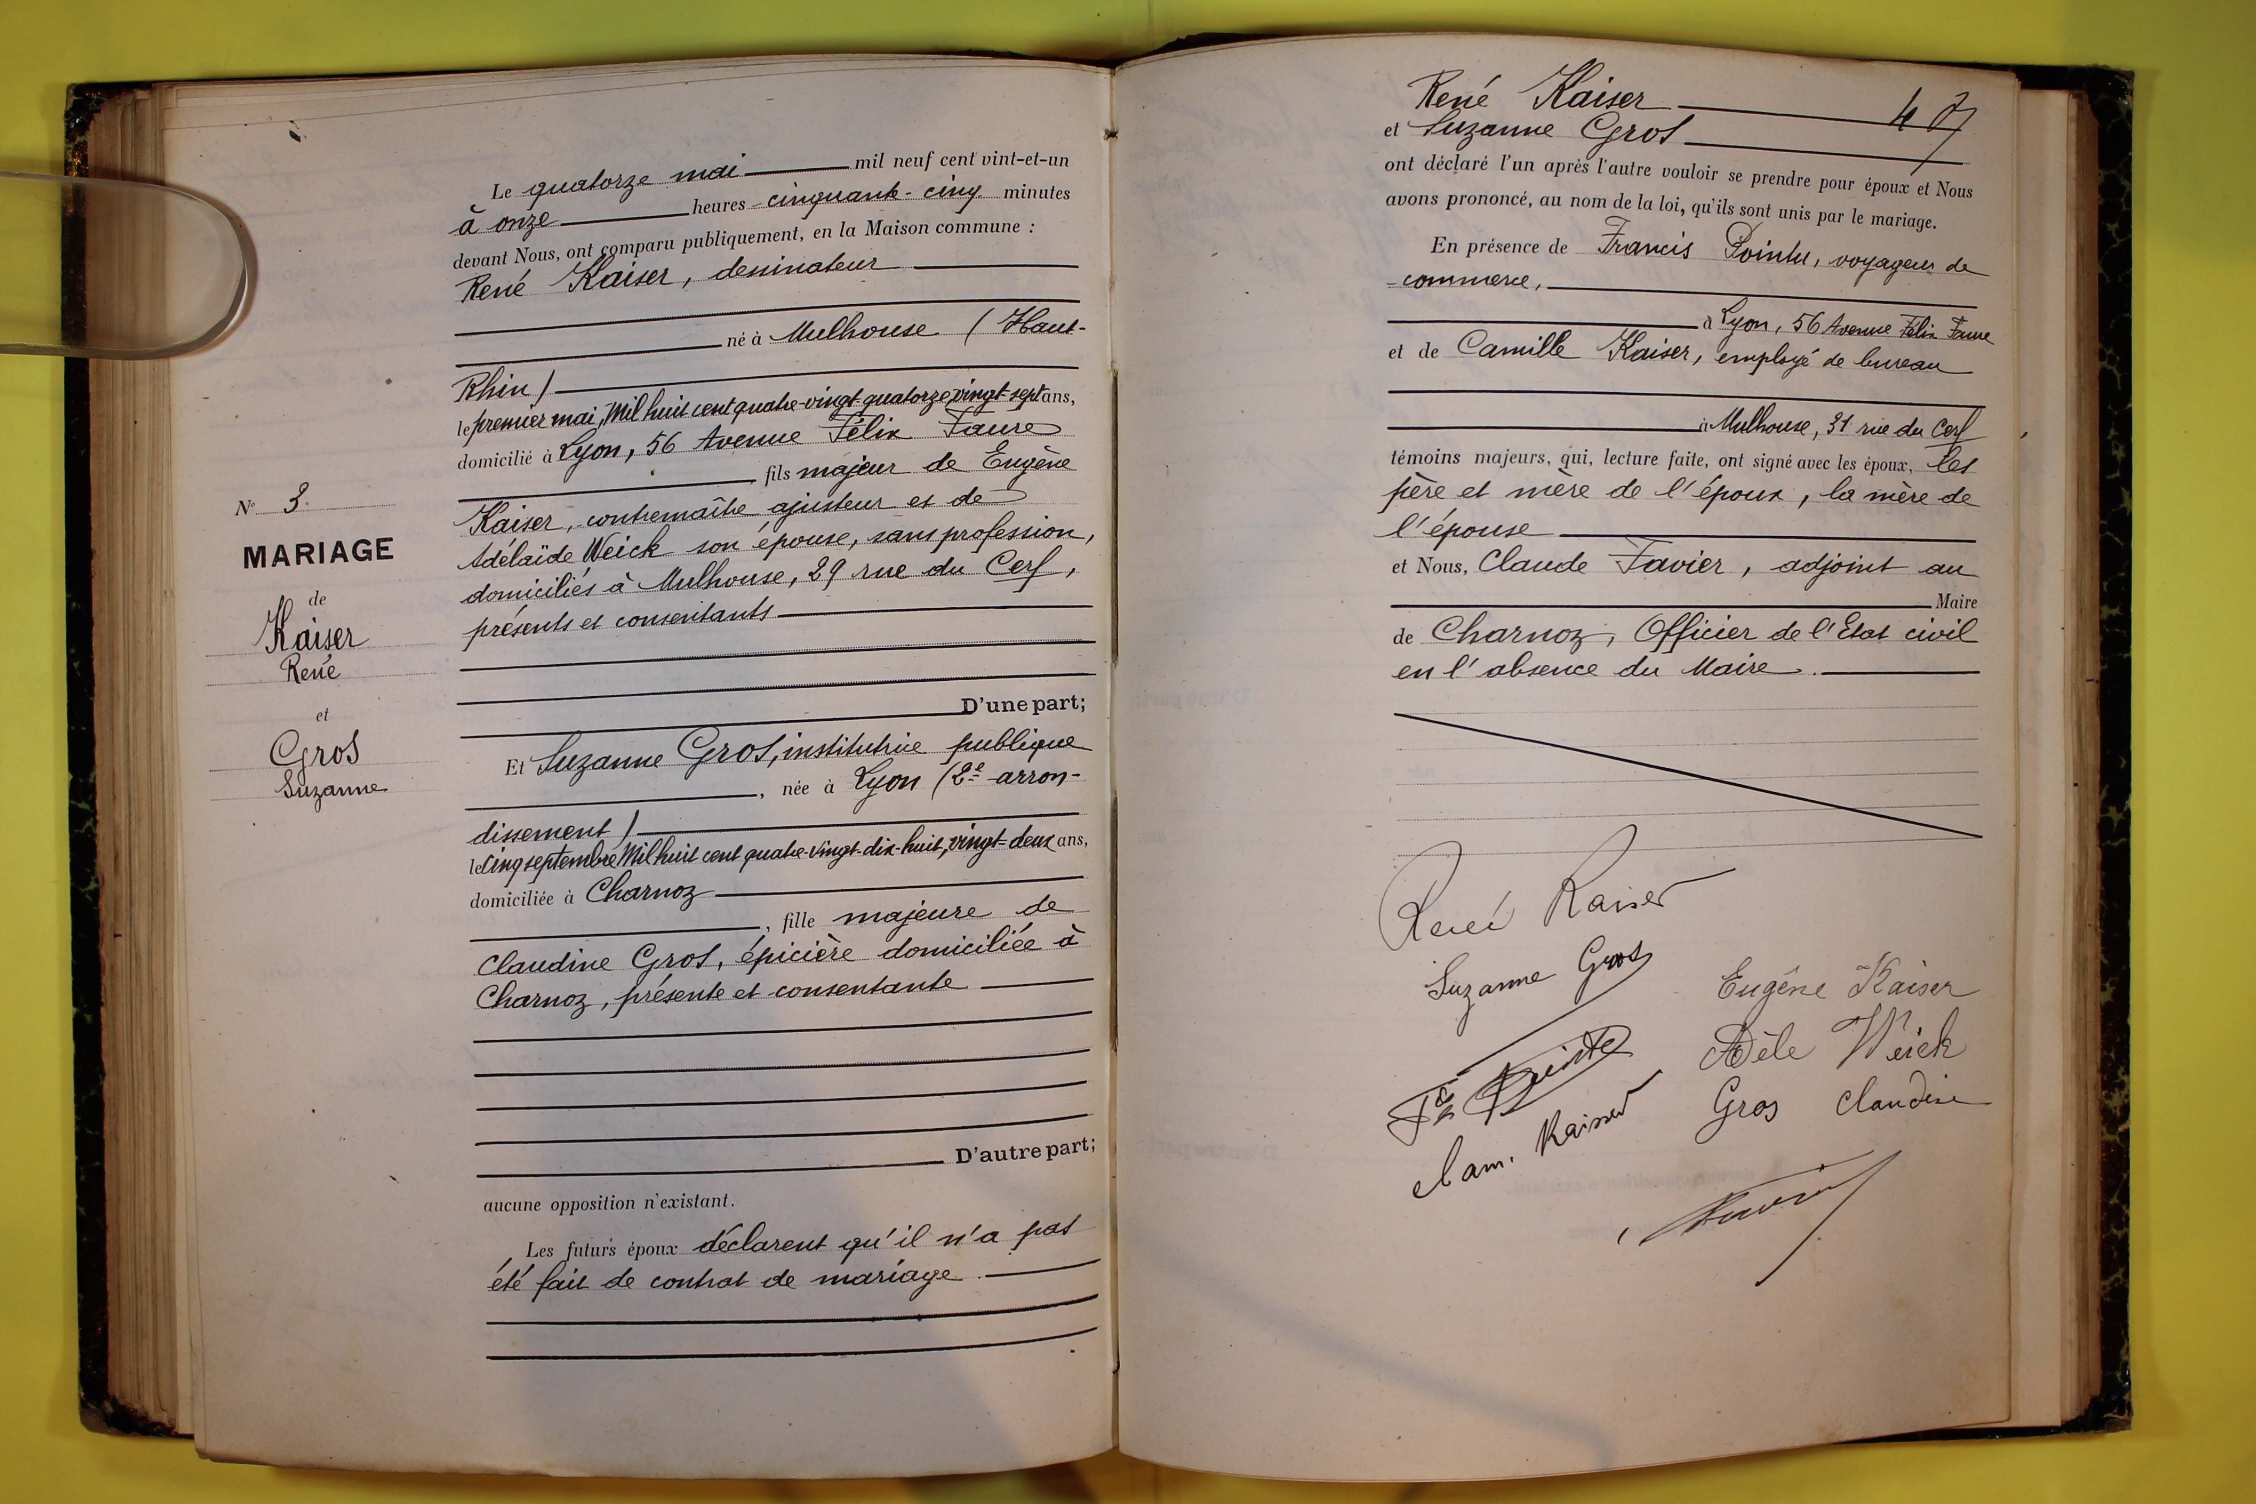 N° 3.
MARIAGE
de
Kaiser
René
et
Gros
Suzanne
Le quatorze mai mil neuf cent vint-et-un
à onze heures cinquante-cinq minutes
devant Nous, ont comparu publiquement, en la Maison commune :
René Kaiser, dessinateur
né à Mulhouse (Haut-
Rhin)
le premier mai, Mil huit cent quatre-vingt-quatorze, vingt-sept ans,
domicilié à Lyon, 56 Avenue Félix Faure
fils majeur de Eugène
Kaiser, contremaître ajusteur et de
Adélaïde Weick son épouse, sans profession,
domiciliés à Mulhouse, 29 rue du Cerf,
présents et consentants
D'une part;
Et Suzanne Gros, institutrice publique
, née à Lyon (2e arron-
dissement)
le cinq septembre Mil huit cent quatre-vingt-dix-huit, vingt-deux ans,
domiciliée à Charnoz
, fille majeure de
Claudine Gros, épicière domiciliée à
Charnoz, présente et consentante
D'autre part;
aucune opposition n'existant.
Les futurs époux déclarent qu'il n'a pas
été fait de contrat de mariage.
47
René Kaiser
et Suzanne Gros
ont déclaré l'un après l'autre vouloir se prendre pour époux et Nous
avons prononcé, au nom de la loi, qu'ils sont unis par le mariage.
En présence de Francis Pointu, voyageur de
commerce,
à Lyon, 56 Avenue Félix Faure
et de Camille Kaiser, employé de bureau
à Mulhouse, 31 rue du Cerf
témoins majeurs, qui, lecture faite, ont signé avec les époux, les
père et mère de l'époux, la mère de
l'épouse
et Nous, Claude Favier, adjoint au
Maire
de Charnoz, Officier de l'Etat civil
en l'absence du Maire.
René Kaiser
Suzanne Gros
Eugène Kaiser
Adèle Weick
Cam. Kaiser
Gros Claudine